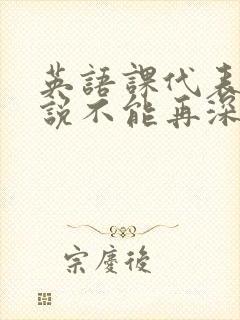 英語課代表
說不能再深
宗慶後